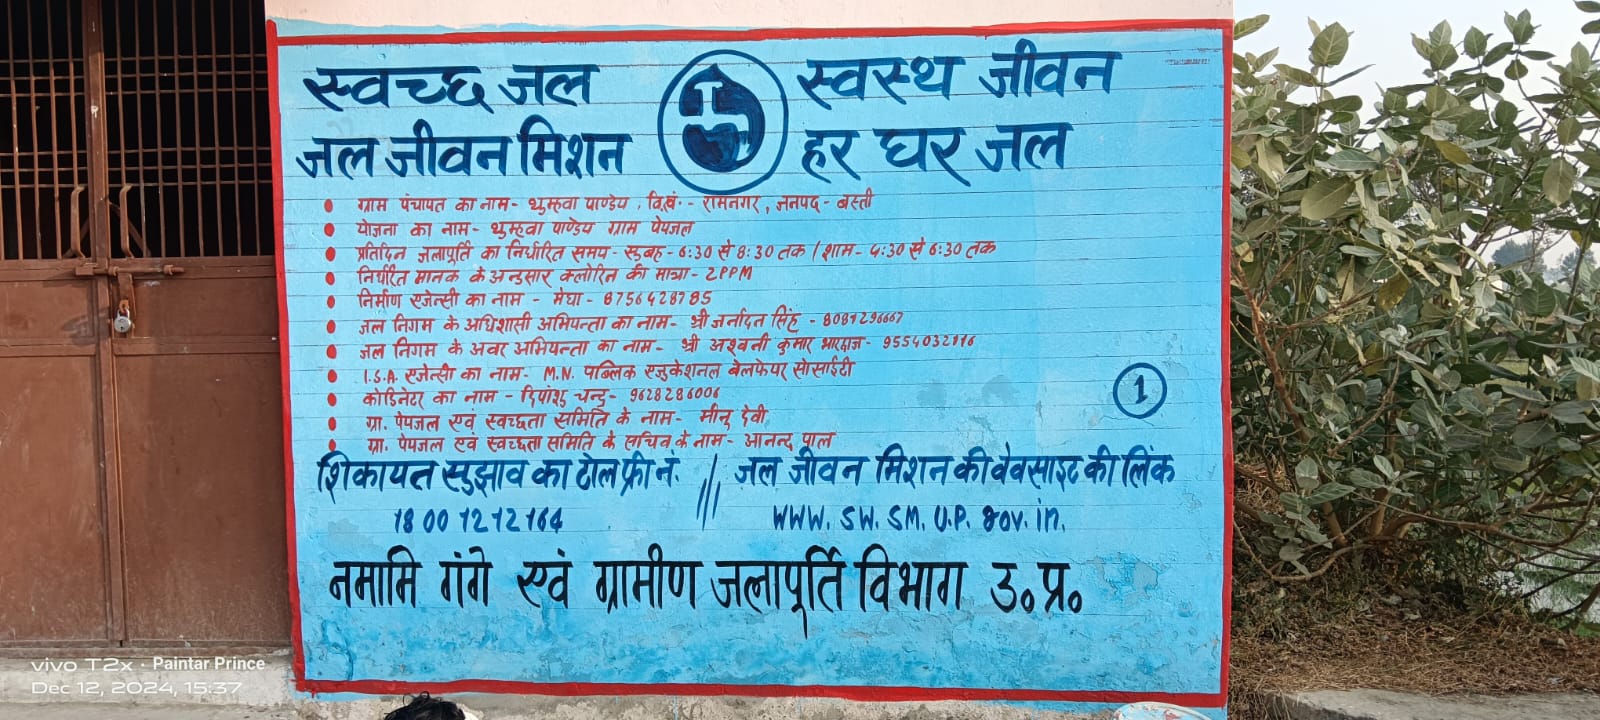 स्वच्छ जल स्वस्थ जीवन
जल जीवन मिशन हर घर जल
ग्राम पंचायत का नाम- थुम्हवा पाण्डेय, वि.खं.- रामनगर, जनपद- बस्ती
योजना का नाम- थुम्हवा पाण्डेय ग्राम पेयजल
प्रतिदिन जलापूर्ति का निर्धारित समय- सुबह- 6:30 से 8:30 तक / शाम- 4:30 से 6:30 तक
निर्धारित मानक के अनुसार क्लोरिन की मात्रा- 2PPM
निर्माण एजेन्सी का नाम - मेघा - 8756428785
जल निगम के अधिशासी अभियन्ता का नाम- श्री जर्नादन सिंह -
जल निगम के अवर अभियन्ता का नाम- श्री अश्वनी कुमार भारद्वाज-
I.S.A. एजेन्सी का नाम- M.N. पब्लिक एजुकेशनल वेलफेयर सोसाईटी
कोडिनेटर का नाम - दिपांशु चन्द- 9628286006
ग्रा. पेयजल एवं स्वच्छता समिति के नाम- मीनू देवी
ग्रा. पेयजल एवं स्वच्छता समिति के सचिव के नाम- आनन्द पाल
1
शिकायत सुझाव का टोल फ्री नं. /// जल जीवन मिशन की वेवसाइट की लिंक
18 00 1212 164 WWW. SW. SM. U.P. gov. in.
नमामि गंगे एवं ग्रामीण जलापूर्ति विभाग उ॰ प्र॰
vivo T2x · Paintar Prince
Dec 12, 2024, 15:37